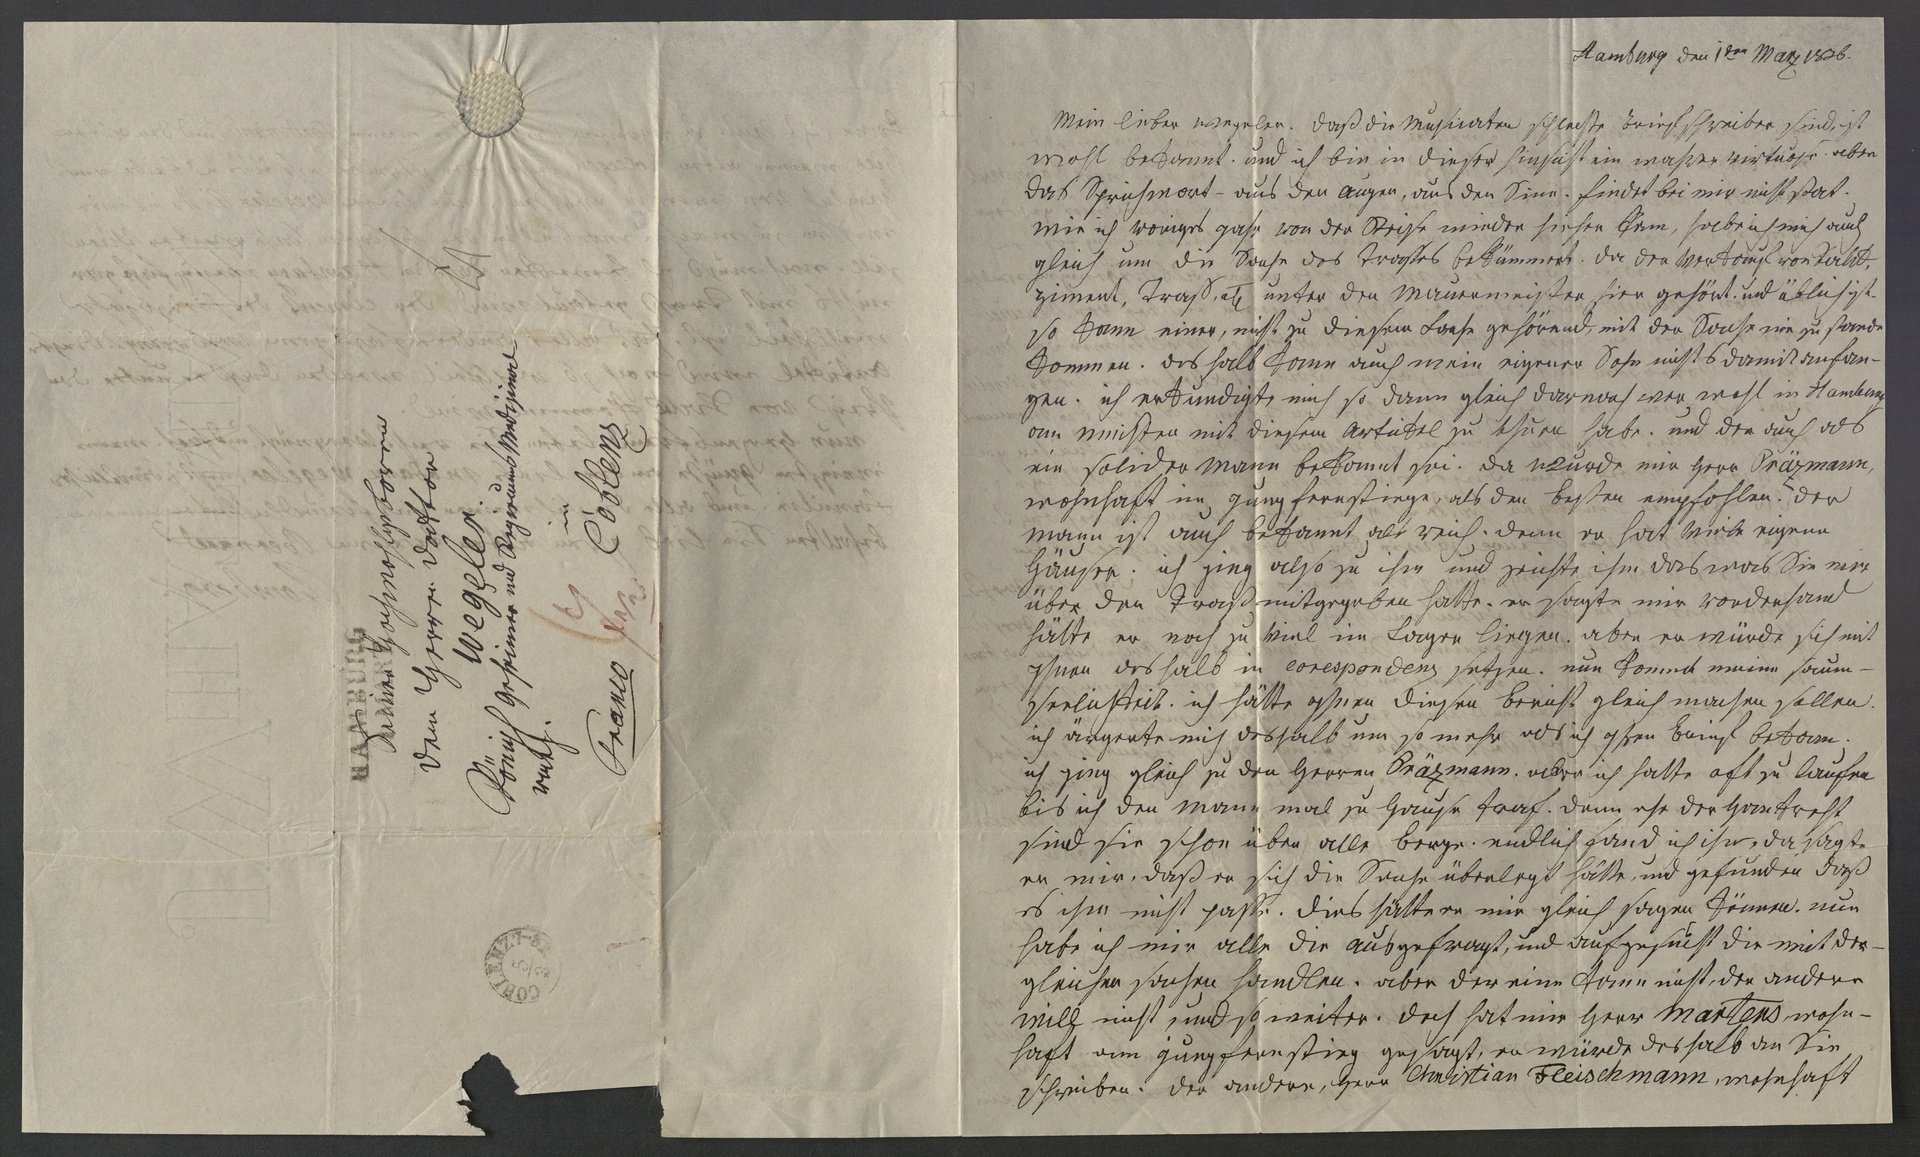 Seiner Hochwohlgeboren
den Herrn Doktor
Wegeler.
König Geheimer und Regierungs Medizinal
rath.
in
Coblenz
Franco
HAMBURG
COBLENZ
Hamburg den 1ten März 1826.
Mein lieber Wegeler. daß die Musikaten schlechte briefschreiber sind, ist
wohl bekannt. und ich bin in dieser hinsicht ein wahrer virtuose. aber
das Sprichwort - aus den Augen, aus den Sinn. findet bei mir nicht stat.
wie ich voriges jahr von der Reise wieder hieher kam, habe ich mich auch
gleich um die Sache des Trasses bekümmert. da der Verkauf von Kalk,
ziment, Traß, etc unter den Mauermeister hier gehört. und üblich ist
so kann einer, nicht zu diesem Fache gehörend, mit der Sache nie zu stande
kommen. deshalb kann auch mein eigener Sohn nichts damit anfan-
gen. ich erkundigte mich so dann gleich darnach wer wohl in Hamburg
am meisten mit diesem Artikel zu thuen habe. und der auch als
ein solider Mann bekannt sei. da wurde mir Herr Präzmann,
wohnhaft im jungfernstiege, als den besten empfohlen. der
mann ist auch bekannt als reich. denn er hat viele eigene
Häuser. ich ging also zu ihm und zeichte ihm das was Sie mir
über den Traß mitgegeben hatte. er sagte mir vorderhand
hätte er noch zu viel im Lager liegen. aber er würde sich mit
ihnen deshalb in corespondenz setzen. nun kommt meine saum-
seelichkeit. ich hätte ihnen diesen bericht gleich machen sollen.
ich ärgerte mich deshalb um so mehr als ich ihren brief bekam.
ich ging gleich zu den Herren Präzmann. aber ich hatte oft zu laufen
bis ich den Mann mal zu Hause traf. denn ehe der Han kreht
sind sie schon über alle berge. endlich fand ich ihn, da sagte
er mir, daß er sich die Sache überlegt hätte, und gefunden daß
es ihm nicht passe. dies hätte er mir gleich sagen können. nun
habe ich mir alle die ausgefragt, und aufgesucht die mit der-
gleichen sachen handlen. aber der eine kann nicht, der andere
will nicht, und so weiter. doch hat mir Herr Martens, wohn-
haft am jungfernstieg gesagt, er würde deshalb an Sie
schreiben. der andere, Herr Christian Fleischmann, wohnhaft